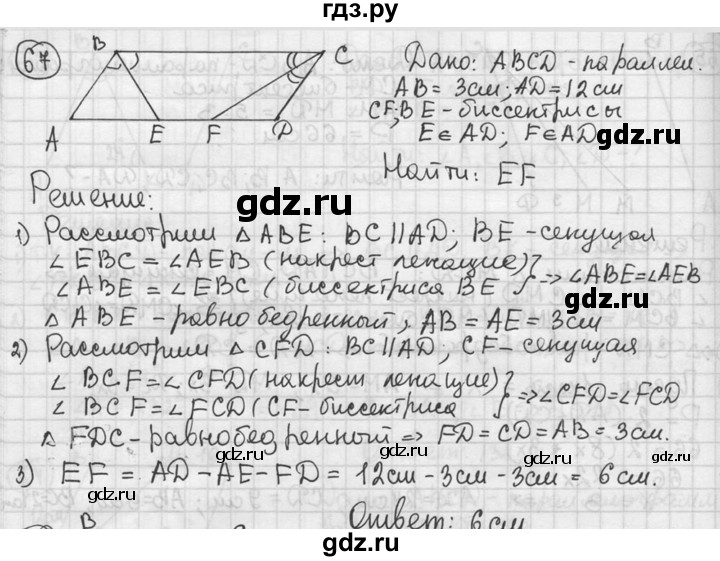 гдз.ру
67
B
C
A
E
F
D
Дано: ABCD - параллел.
AB = 3см; AD = 12см
CF; BE - биссектрисы
E ∈ AD; F ∈ AD
gdz.ru
Найти: EF
Решение:
gdz.ru
1) Рассмотрим △ ABE: BC || AD; BE - секущая
∠ EBC = ∠ AEB (накрест лежащие)
∠ ABE = ∠ EBC (биссектриса BE } => ∠ABE = ∠AEB
gdz.ru
△ ABE - равнобедренный, AB = AE = 3см
2) Рассмотрим △ CFD: BC || AD, CF - секущая
∠ BCF = ∠ CFD (накрест лежащие)
∠ BCF = ∠ FCD (CF - биссектриса } => ∠CFD = ∠FCD
gdz.ru
△ FDC - равнобедренный => FD = CD = AB = 3см.
3) EF = AD - AE - FD = 12см - 3см - 3см = 6см.
gdz.ru
B
Ответ: 6см
gdz.ru
gdz.ru